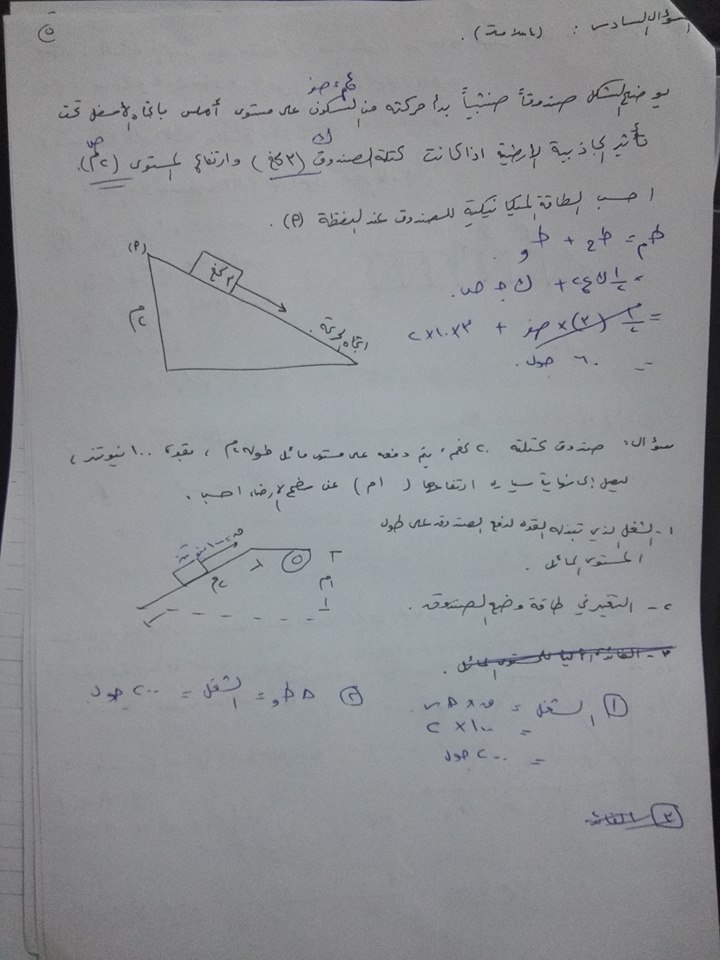 ٥
السؤال السادس : (٤ علامات) .
ع١ = صفر
يوضح الشكل صندوقاً خشبياً بدأ حركته من السكون على مستوى أملس باتجاه الاسفل تحت
ك ص
تأثير الجاذبية الارضية اذا كانت كتلة الصندوق (٣ كغ) وارتفاع المستوى (٢م).
احسب الطاقة الميكانيكية للصندوق عند النقطة (٩) .
طم = طح + طو
= ١/٢ ك ع٢ + ك جـ ص .
= ١/٢ (٣) × صفر + ٣×١٠×٢
= ٦٠ جول .
(٩)
٣ كغ
٢م
اتجاه الحركة .
سؤال: صندوق كتلته ٢٠ كغم، يتم دفعه على مستوى مائل طوله ٢م ، بقوة ١٠٠ نيوتن ،
ليصل إلى نهاية سيارة ارتفاعها ( ١م ) عن سطح الارض، احسب .
١- الشغل الذي تبذله القوة لدفع الصندوق على طول
المستوى المائل .
٢- التغير في طاقة وضع الصندوق .
ق=١٠٠ نيوتن
٢م
١م
١ الشغل = ق × Δس
= ١٠٠ × ٢
= ٢٠٠ جول
٢ Δ طو = الشغل = ٢٠٠ جول
٣